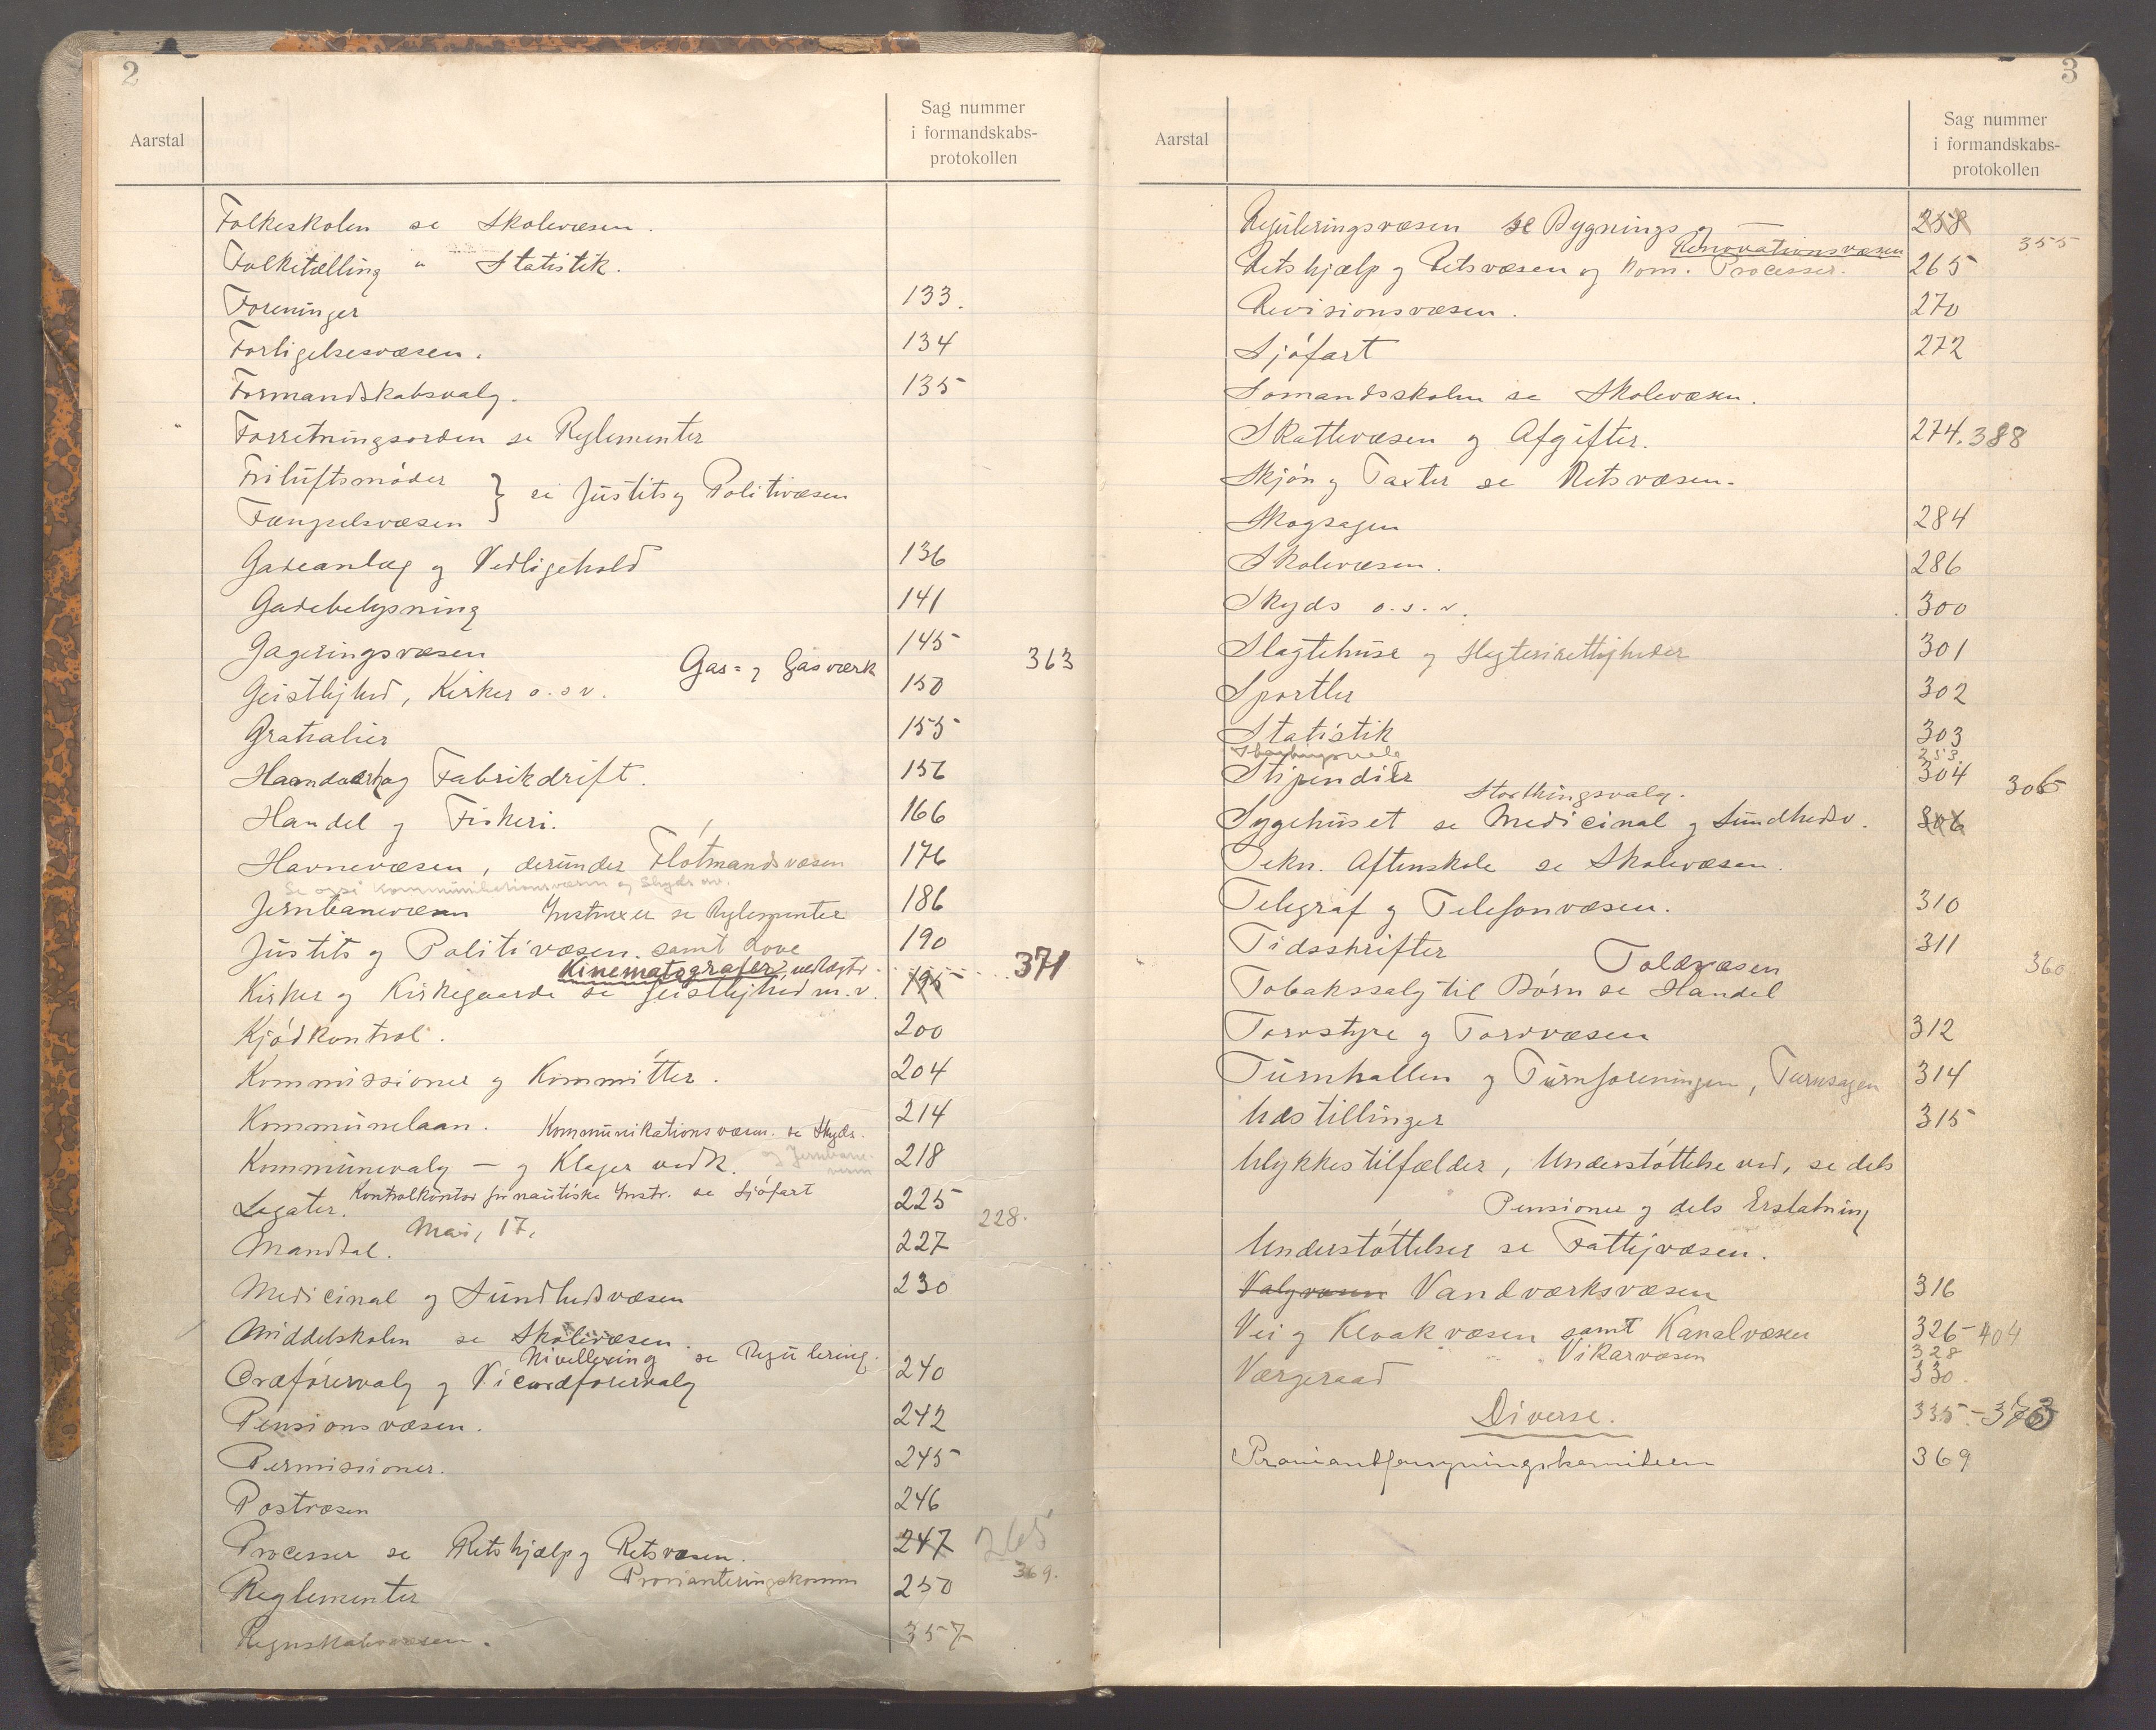 2
Aarstal
Sag nummer
i formandskabs-
protokollen
Folkeskolen se Skolevæsen.
Folketælling " Statistik.
Foreninger 133.
Forligelsesvæsen. 134
Formandskabsvalg. 135
Forretningsorden se Reglementer
Friluftsmøder
Fængselsvæsen } se Justits og Politivæsen
Gadeanlæg og Vedligehold 136
Gadebelysning 141
Gageringsvæsen 145
Gas= og Gasværk 363
Geistlighed, Kirker o.s.v. 150
Gratialier 155
Haandværk og Fabrikdrift. 156
Handel og Fiskeri. 166
Havnevæsen, derunder Fløtmandsvæsen 176
Se også Kommunikationsvæsen og Skyds osv.
Jernbanevæsen Instruxer se Reglementer 186
Justits og Politivæsen. samt Love 190
Kinematografer, vedtægter 371
Kirker og Kirkegaarde se Geistlighed m.v. 195
Kjødkontrol. 200
Kommissioner og Kommitter. 204
Kommunelaan. Kommunikationsvæsen. se Skyds. 214
og Jernbane-
væsen
Kommunevalg — og Klager vedk. 218
Kontrolkontor for nautiske Instr. se Sjøfart
Legater. 225
Mai, 17. 228.
Mandtal. 227
Medicinal og Sundhedsvæsen 230
Middelskolen se Skolevæsen.
Nivellering se Regulering.
Ordførervalg og Viceordførervalg 240
Pensionsvæsen. 242
Permissioner. 245
Postvæsen 246
Processer se Retshjælp og Retsvæsen. 247 265
Provianteringskomm 369.
Reglementer 250
Regnskabsvæsen. 357
3
Aarstal
Sag nummer
i formandskabs-
protokollen
Reguleringsvæsen se Bygnings og — 258
Renovationsvæsen 355
Retshjælp og Retsvæsen og Kom. Processer. 265
Revisionsvæsen. 270
Sjøfart 272
Sømandsskolen se Skolevæsen.
Skattevæsen og Afgifter. 274. 388
Skjøn og Taxter se Retsvæsen.
Skogsagen 284
Skolevæsen. 286
Skyds o.s.v. 300
Slagtehuse og Slagterirettigheder 301
Sportler 302
Statistik 303
Storthingsvalg 353.
Stipendier 304
Storthingsvalg. 306
Sygehuset se Medicinal og Sundhedsv. 306
Tekn. Aftenskole se Skolevæsen.
Telegraf og Telefonvæsen. 310
Tidsskrifter 311
Toldvæsen 360
Tobakssalg til Børn se Handel
Torvstyre og Torvvæsen 312
Turnhallen og Turnforeningen, Turnsagen 314
Udstillinger 315
Ulykkestilfælder, Understøttelse ved, se dels
Pensioner og dels Erstatning
Understøttelser se Fattigvæsen.
Valgvæsen Vandværksvæsen 316
Vei og Kloakvæsen samt Kanalvæsen 326-404
Vikarvæsen 328
Værgeraad 330.
Diverse. 335-373
Proviantforsyningskomiteen 369